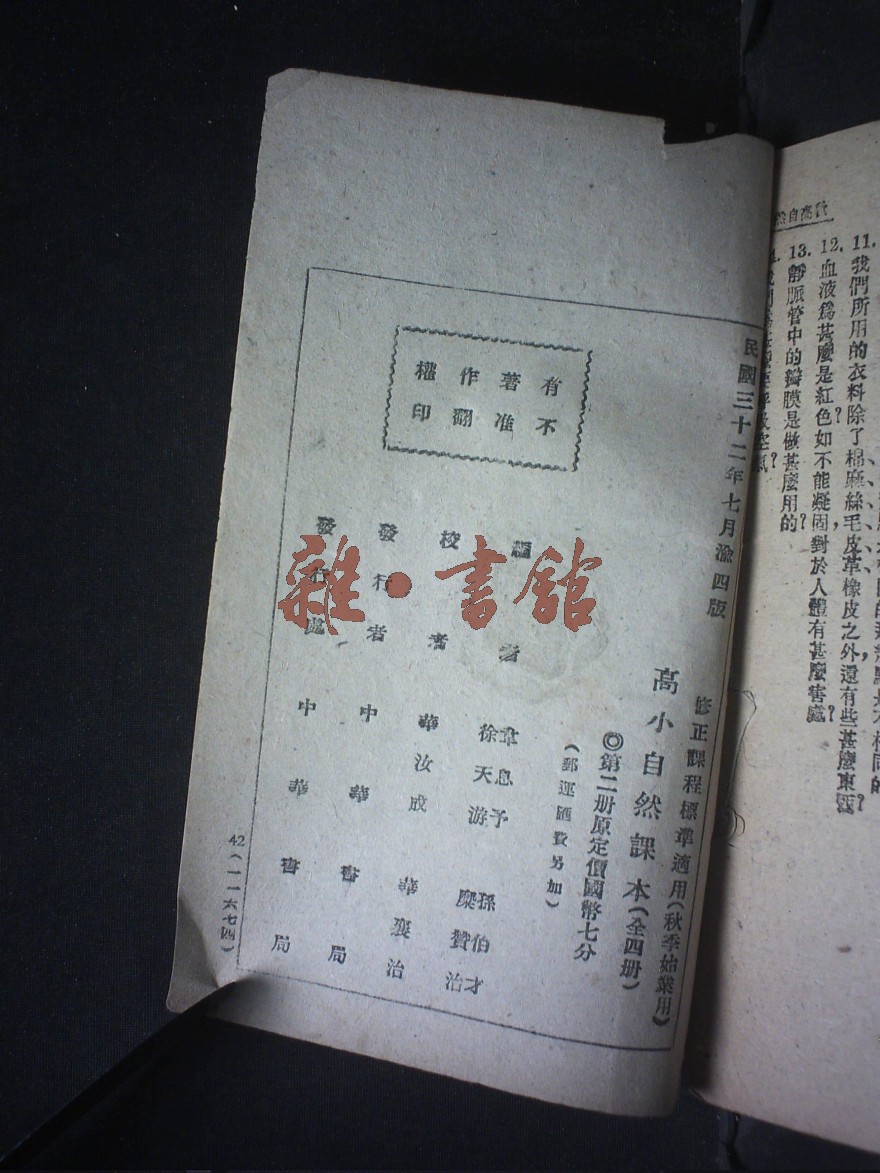 新高自然
11. 我們所用的衣料除了棉、麻、絲、毛、皮革、橡皮之外，還有些甚麼東西？
12. 血液爲甚麼是紅色？如不能凝固，對於人體有甚麼害處？
13. 靜脈管中的瓣膜是做甚麼用的？
民國三十二年七月渝四版
修正課程標準適用（秋季始業用）
高小自然課本（全四册）
◎第二册原定價國幣七分
（郵運匯費另加）
有著作權
不准翻印
編者 韋息予 孫伯才
徐天游 糜贊治
校者 華汝成 華襄治
發行者 中華書局
發行處 中華書局
42（一一六七四）
雜·書館